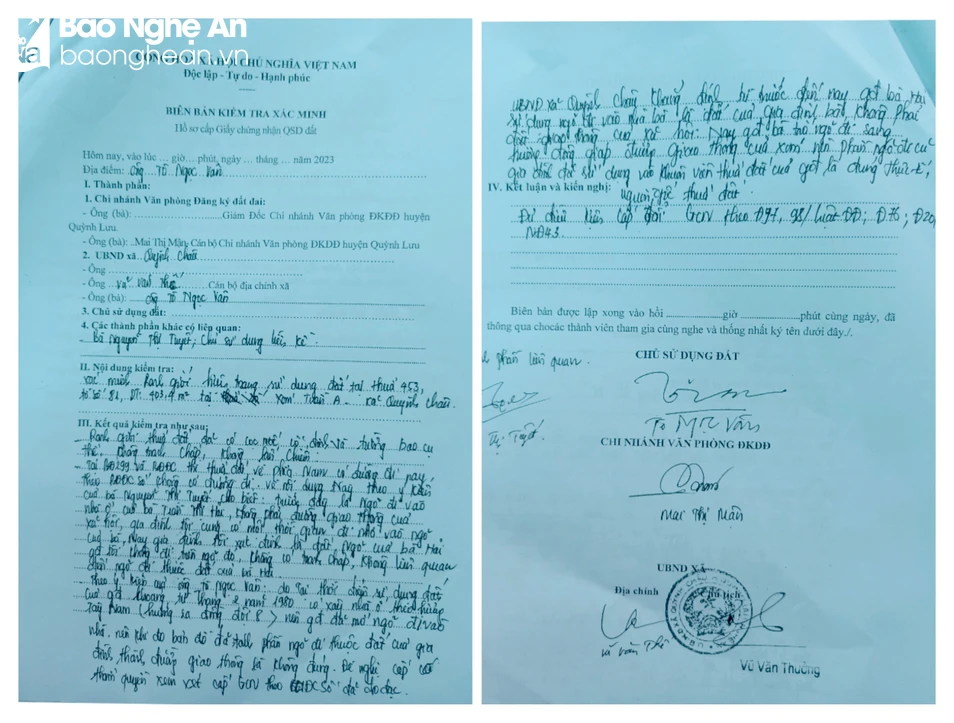 Báo Nghệ An
baonghean.vn
CỘNG HÒA XÃ HỘI CHỦ NGHĨA VIỆT NAM
Độc lập - Tự do - Hạnh phúc
BIÊN BẢN KIỂM TRA XÁC MINH
Hồ sơ cấp Giấy chứng nhận QSD đất
Hôm nay, vào lúc ... giờ... phút, ngày ... tháng ... năm 2023
Địa điểm: ông Tô Ngọc Vân
I. Thành phần:
1. Chi nhánh Văn phòng Đăng ký đất đai:
- Ông (bà): ........................Giám Đốc Chi nhánh Văn phòng ĐKĐĐ huyện
Quỳnh Lưu
- Ông (bà): ..Mai Thị Mận, Cán bộ Chi nhánh Văn phòng ĐKĐĐ huyện Quỳnh Lưu
2. UBND xã Quỳnh Châu
- Ông
- Ông Vũ Văn Thi Cán bộ địa chính xã
- Ông (bà): ông Tô Ngọc Vân
3. Chủ sử dụng đất:
4. Các thành phần khác có liên quan:
Bà Nguyễn Thị Tuyết; Chủ sử dụng liền kề
II. Nội dung kiểm tra:
xác minh Ranh giới hiện trạng sử dụng đất tại thửa 953,
tờ số 81, DT: 903,4 m² tại xóm Tuần A xã Quỳnh Châu.
III. Kết quả kiểm tra như sau:
Ranh giới thửa đất đã có cọc mốc cố định và tường bao cụ
thể, không tranh chấp, không lấn chiếm.
Tại BĐ299 và BĐĐC thì thửa đất về phía Nam có đường đi nay
theo BĐĐC số không có đường đi. về nội dung Nay theo ý kiến
của bà Nguyễn Thị Tuyết cho biết: trước đây là ngõ đi vào
nhà ở của bà Trần Thị Hải, không phải đường giao thông của
xã hội, gia đình tôi cũng có một thời gian đi nhờ vào ngõ
của bà, Nay gia đình tôi xác định là đất ngõ của bà Hải
gđ tôi không đi trên ngõ đó, không có tranh chấp, không liên quan
đến ngõ đi thuộc đất của bà Hải
Theo ý kiến ông Tô Ngọc Vân: do tại thời điểm sử dụng đất
của gđ khoảng từ tháng 2 năm 1980 có xây nhà ở theo hướng
Tây Nam (hướng ra đồng đội 8) nên gđ đã mở ngõ đi vào
nhà. nên khi đo bản đồ đã tách phần ngõ đi thuộc đất của gia
đình thành đường giao thông là không đúng. Đề nghị cấp có
thẩm quyền xem xét cấp GCN theo BĐĐC số đã đo đạc.
UBND xã Quỳnh Châu khẳng định từ trước đến nay gđ bà Hải
sử dụng ngõ đi vào nhà là đất của gia đình bà không phải
đất giao thông của xã hội. Nay gđ bà trổ ngõ đi sang
hướng đông giáp đường giao thông của xóm nên phần ngõ đi cũ
gia đình đã sử dụng vào khuôn viên thửa đất của gđ là đúng thực tế,
nguồn gốc thửa đất.
IV. Kết luận và kiến nghị:
Đủ điều kiện cấp đổi GCN theo Đ97, 98/luật ĐĐ; Đ76; Đ20,
NĐ43.
Biên bản được lập xong vào hồi ........................giờ ........................phút cùng ngày, đã
thông qua chocác thành viên tham gia cùng nghe và thống nhất ký tên dưới đây./.
phần liên quan.
CHỦ SỬ DỤNG ĐẤT
Thị Tuyết
Tô Ngọc Vân
CHI NHÁNH VĂN PHÒNG ĐKĐĐ
Mai Thị Mận
UBND XÃ
Địa chính
Chủ tịch
Vũ Văn Thi
Vũ Văn Thường